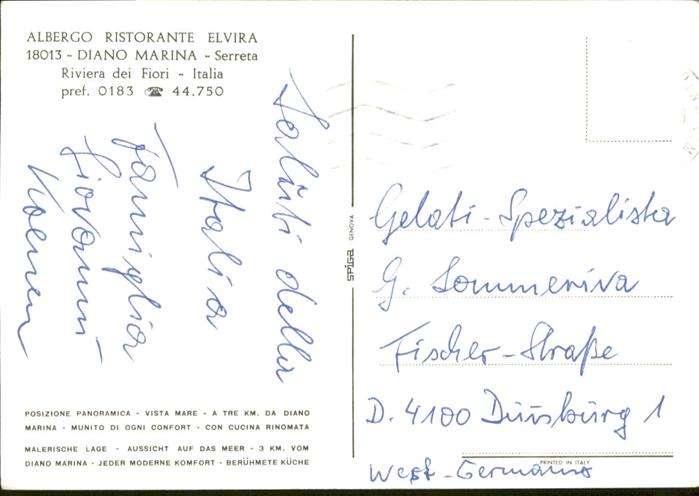 ALBERGO RISTORANTE ELVIRA
18013 - DIANO MARINA - Serreta
Riviera dei Fiori - Italia
pref. 0183 ☎ 44.750
Saluti della
Italia
famiglia
Giovanni
Koenen
POSIZIONE PANORAMICA - VISTA MARE - A TRE KM. DA DIANO
MARINA - MUNITO DI OGNI CONFORT - CON CUCINA RINOMATA
MALERISCHE LAGE - AUSSICHT AUF DAS MEER - 3 KM. VOM
DIANO MARINA - JEDER MODERNE KOMFORT - BERÜHMETE KÜCHE
SPIGA GENOVA
Gelati-Spezialista
G. Sommeriva
Fischer-Straße
D. 4100 Duisburg 1
West-Germania
PRINTED IN ITALY